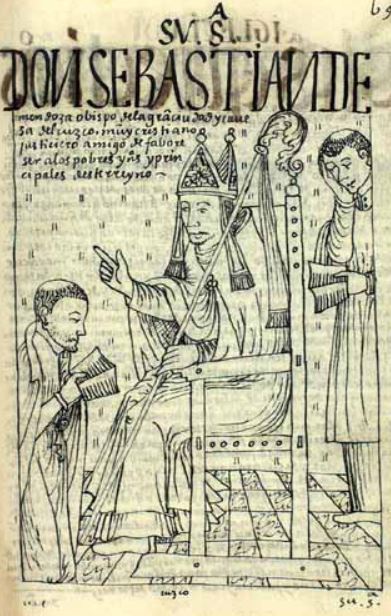 SV S A
DON SEBASTIAN DE
mendoza obispo de la grã ciudad y caue
sa del cuzco, muy cristiano
justiciero amigo de fabore
ser a los pobres yns y prin
cipales deste rreyno
cuzco